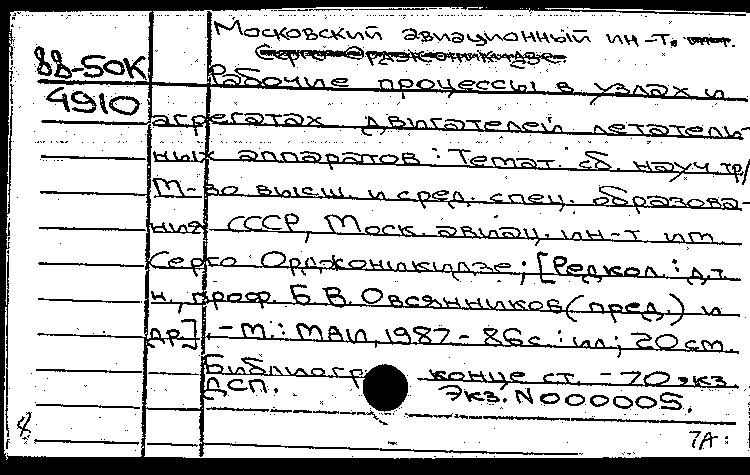 Московский авиационный ин-т.
Серго Орджоникидзе
88-50К
4910
Рабочие процессы в узлах и
агрегатах двигателей летатель-
ных аппаратов: Темат. сб. науч. тр/
М-во высш. и сред. спец. образова-
ния СССР, Моск. авиац. ин-т им.
Серго Орджоникидзе; [Редкол.: д.т.
н., проф. Б.В. Овсянников (пред.) и
др]. - М.: МАИ, 1987 - 86с.: ил; 20 см.
Библиогр конце ст. - 70 экз
ДСП. Экз. N000005.
8
7А: